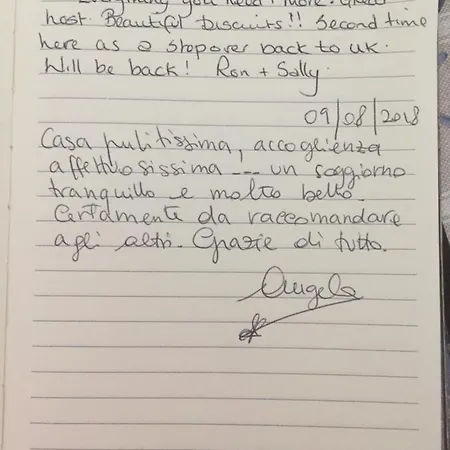 Everything you need & more. Great
host. Beautiful biscuits!! Second time
here as a stopover back to UK.
Will be back! Ron + Sally.
09/08/2018
Casa pulitissima, accoglienza
affettuosissima --- un soggiorno
tranquillo e molto bello.
Certamente da raccomandare
agli altri. Grazie di tutto.
Angela